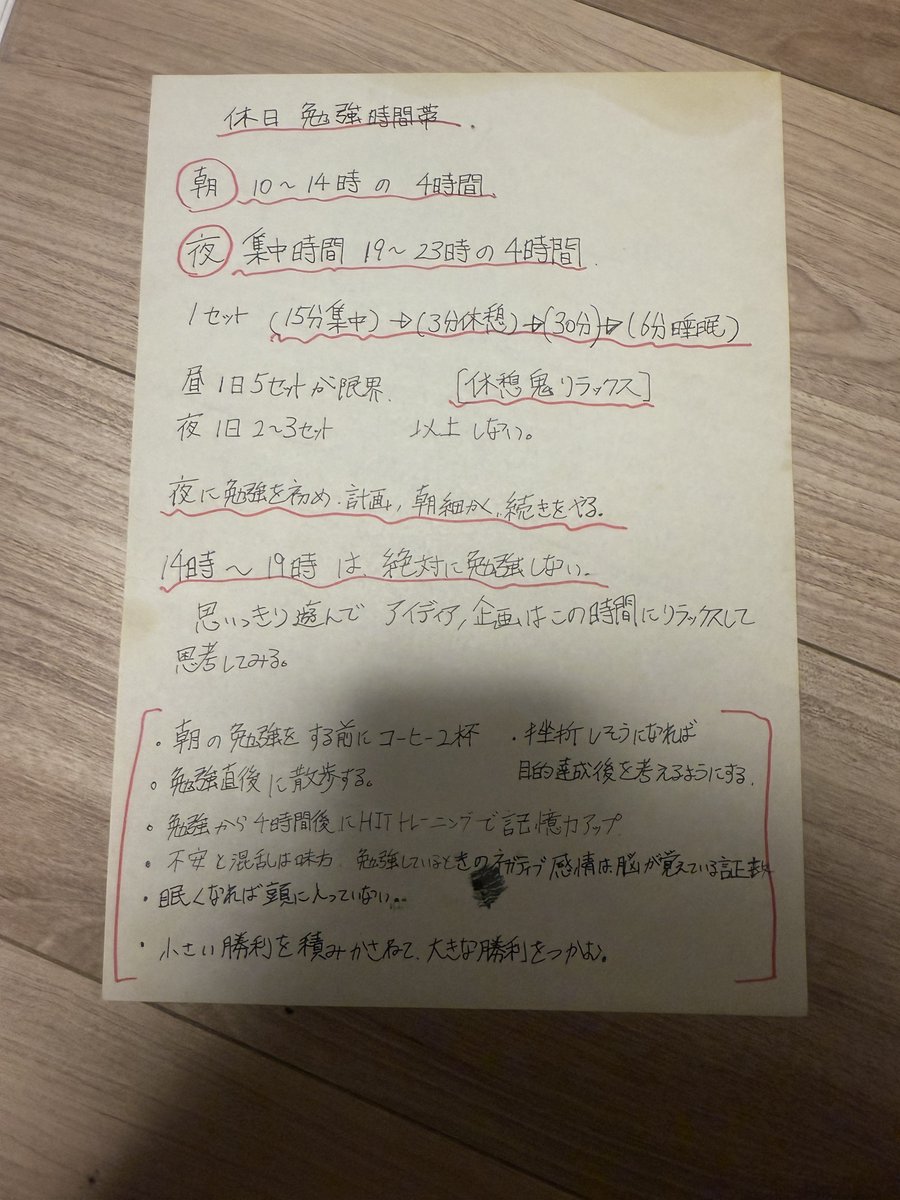 休日 勉強時間帯.
朝 10～14時の 4時間
夜 集中時間 19～23時の4時間.
1セット (15分集中)→(3分休憩)→(30分)→(6分睡眠)
昼 1日5セットが限界. [休憩鬼リラックス]
夜 1日 2～3セット 以上 しない。
夜に勉強を初め.計画, 朝細かく,続きをやる.
14時～19時は、絶対に勉強しない.
思いっきり遊んで アイディア,企画はこの時間にリラックスして
思考してみる。
・朝の勉強を する前に コーヒー2杯
・勉強直後に散歩する。
・挫折しそうになれば
目的達成後を考えるようにする.
・勉強から4時間後にHIITトレーニングで記憶力アップ.
・不安と混乱は味方. 勉強しているときのネガティブ感情は、脳が覚えている証拠
・眠くなれば頭に入っていない..
・小さい勝利を積みかさねて、大きな勝利をつかむ。